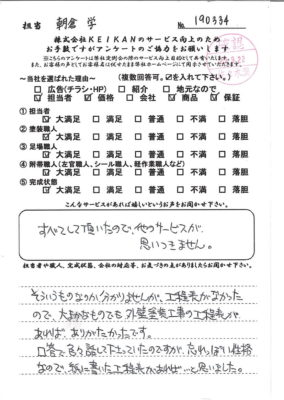 担当 朝倉 学 No. 190334
株式会社KEIKANのサービス向上のため
お手数ですがアンケートのご協力をお願いします
※こちらのアンケートは弊社定例会の際のサービス向上目的として共有いたします。
また、お客様の声としてお客様名は伏せたまま弊社ホームページにて公開させていただきます。
～当社を選ばれた理由～ (複数回答可。☑を入れて下さい。)
□ 広告(チラシ・HP) □ 紹介 □ 地元なので
☑ 担当者 ☑ 価格 □ 会社 ☑ 商品 ☑ 保証
① 担当者
☑ 大満足 □ 満足 □ 普通 □ 不満 □ 落胆
② 塗装職人
☑ 大満足 □ 満足 □ 普通 □ 不満 □ 落胆
③ 足場職人
☑ 大満足 □ 満足 □ 普通 □ 不満 □ 落胆
④ 付帯職人(左官職人、シール職人、軽作業職人など)
☑ 大満足 □ 満足 □ 普通 □ 不満 □ 落胆
⑤ 完成状態
☑ 大満足 □ 満足 □ 普通 □ 不満 □ 落胆
こんなサービスがあれば嬉しいという声をお聞かせ下さい。
すべてして頂いたので、他のサービスが
思いつきません。
担当者や職人、完成状態、会社の対応等、お気づきの点がありましたらお聞かせ下さい。
そういうものなのか分かりませんが、工程表がなかった
ので、大まかなものでも外壁塗装工事の工程表が
あれば、ありがたかったです。
口答で色々話して下さっていたのですが、忘れっぽい性格
なので、紙に書いた工程表があれば…と思いました。